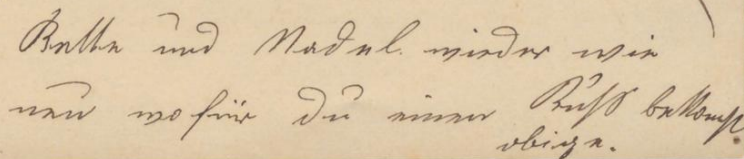 Kette und Nadel wieder wie
neu wofür du einen Kuß bekomst.
obige.